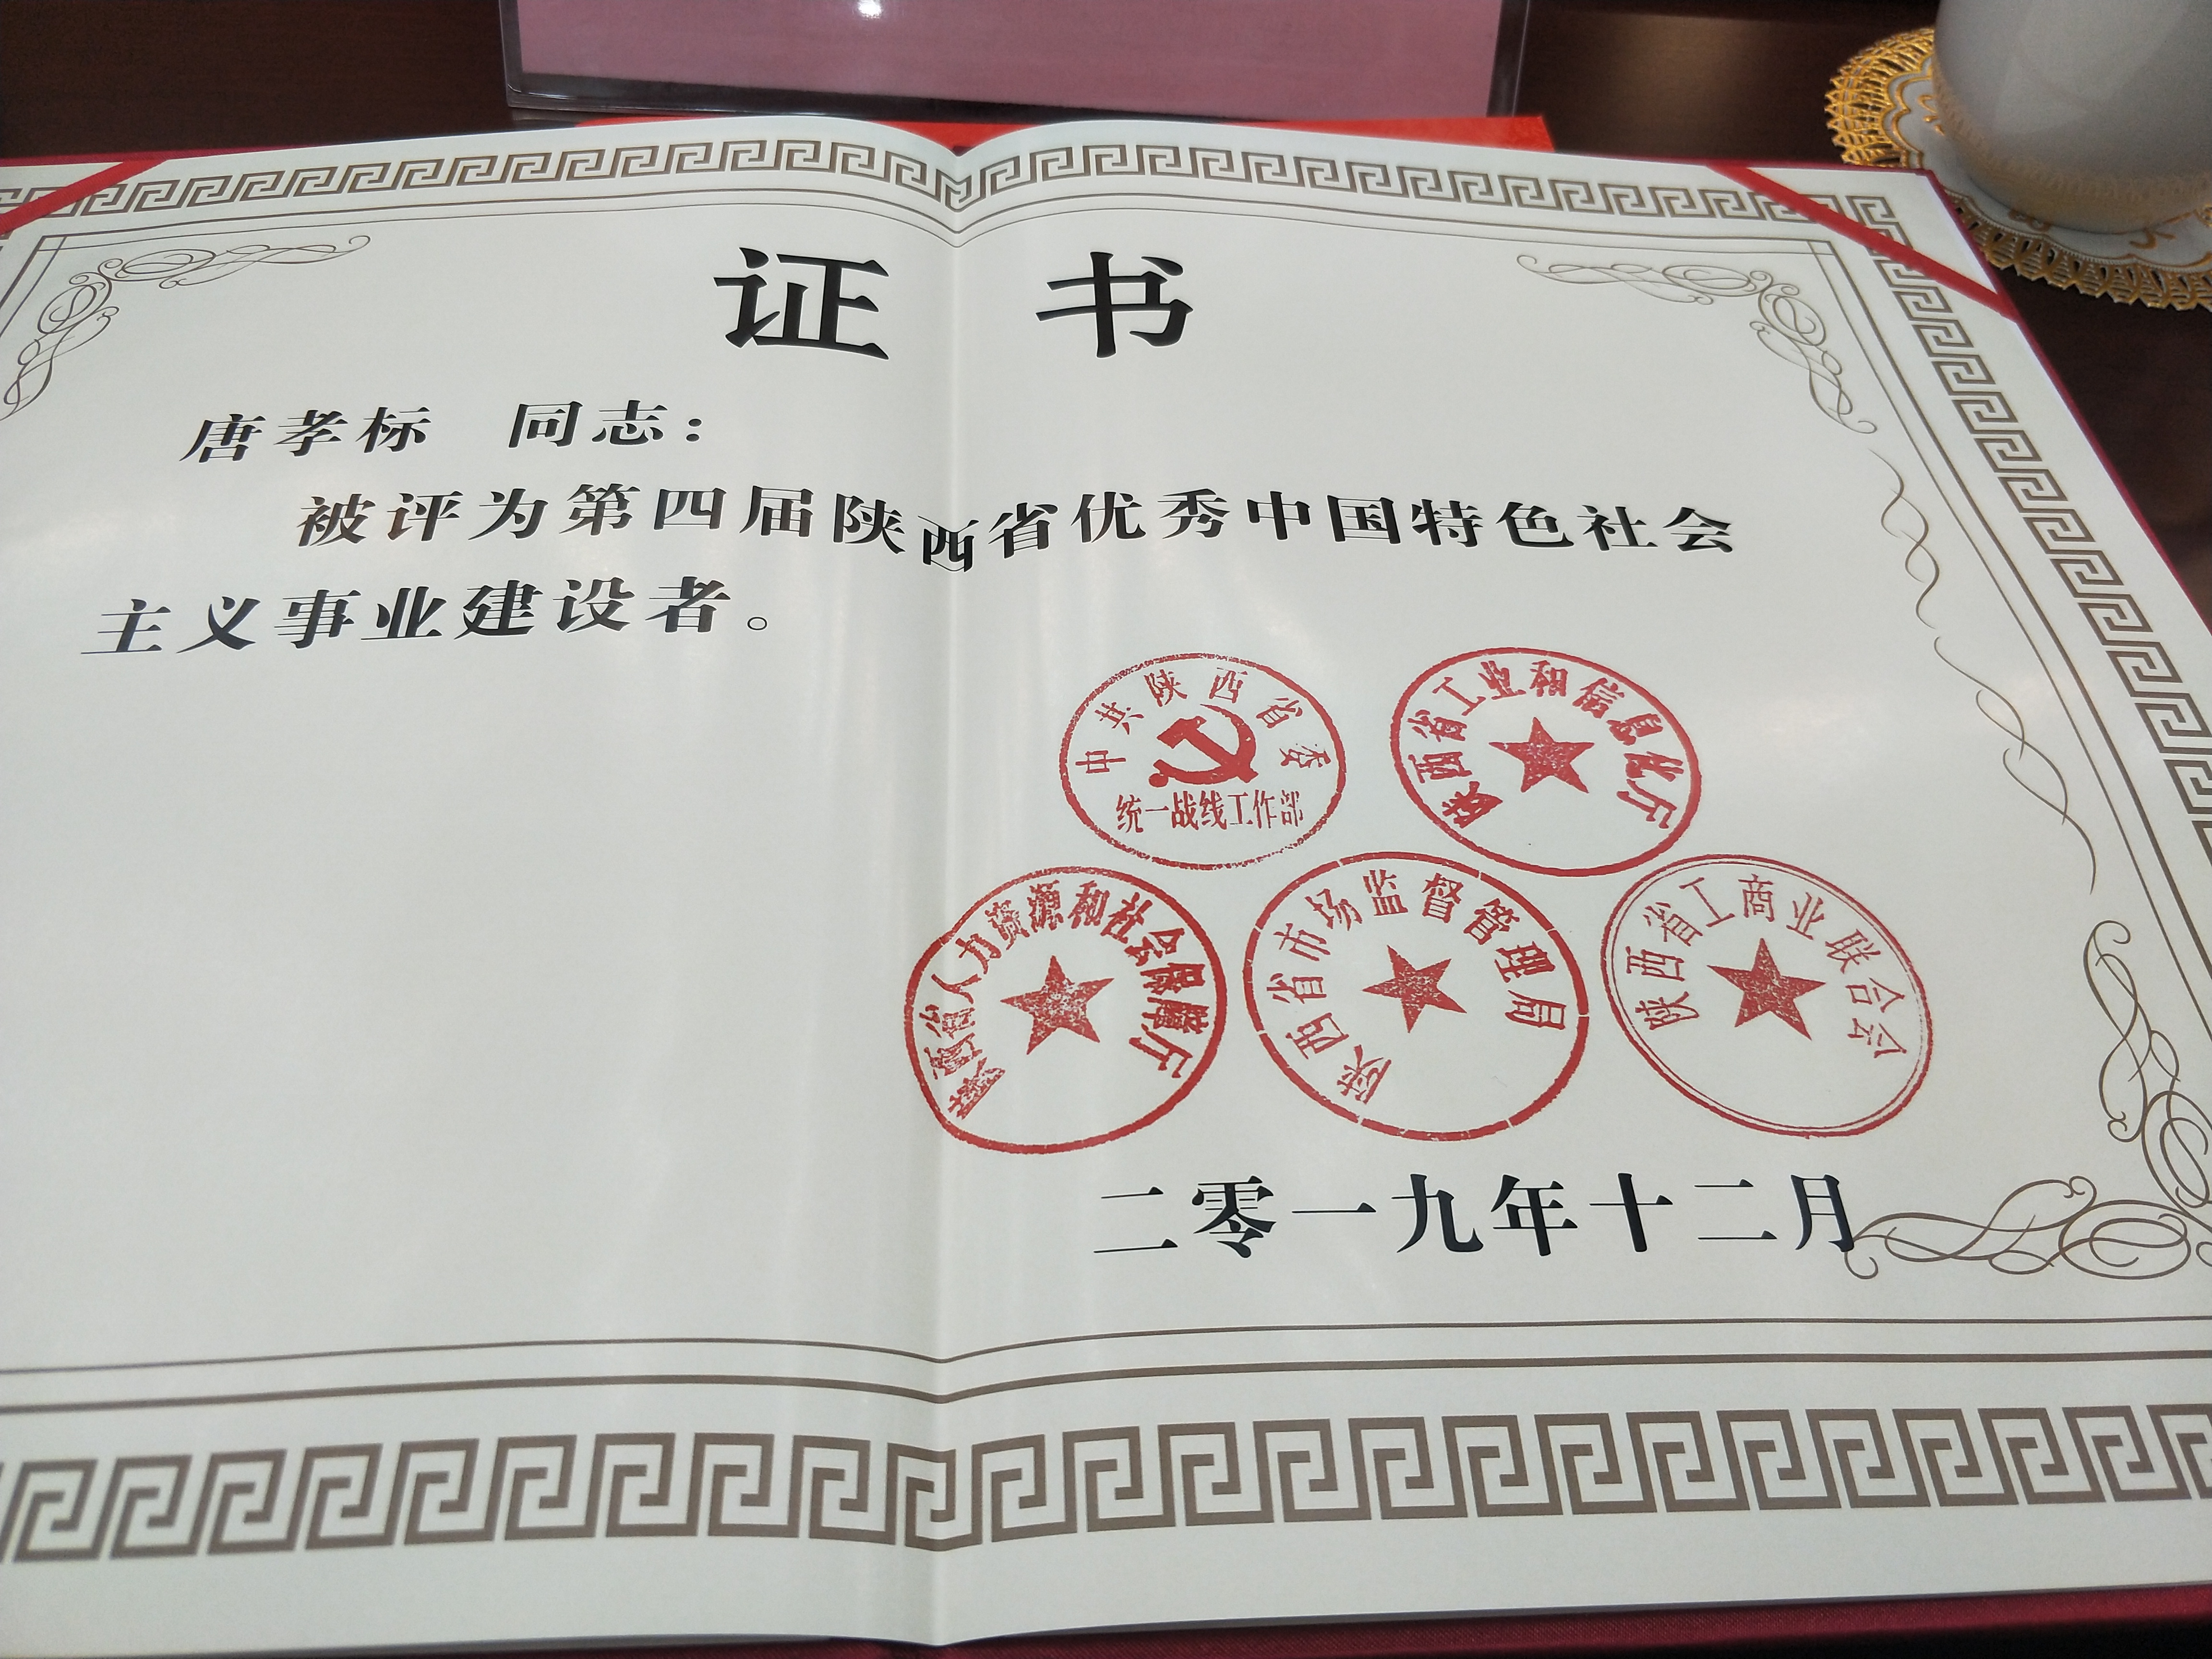 证 书
唐孝标 同志：
被评为第四届陕西省优秀中国特色社会
主义事业建设者。
中共陕西省委
统一战线工作部
陕西省工业和信息化厅
陕西省人力资源和社会保障厅
陕西省市场监督管理局
陕西省工商业联合会
二零一九年十二月